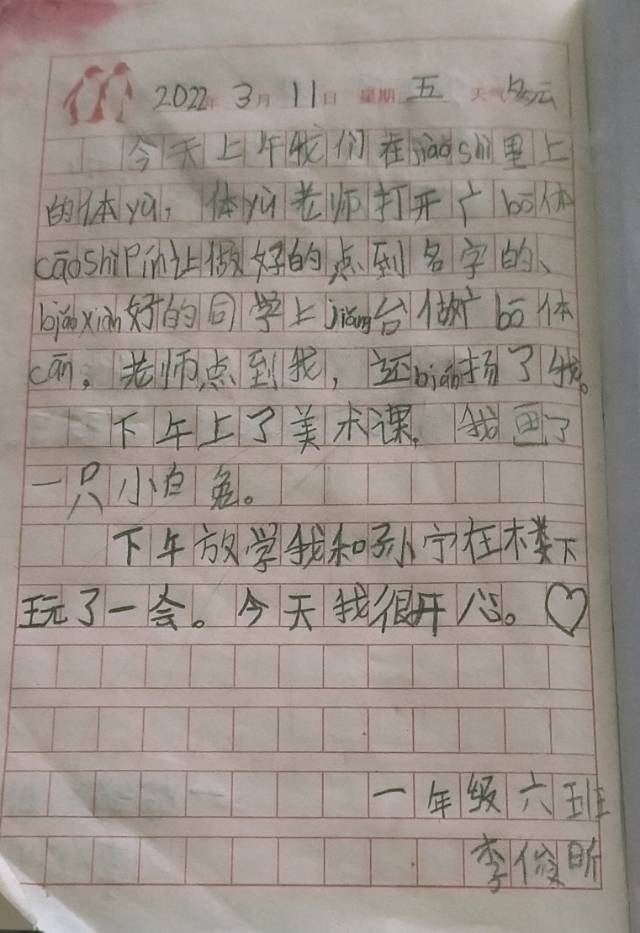 2022年 3月 11日 星期 五 天气
今天上午我们在jiào shì里上
的体yù，体yù老师打开广bō体
cāo shì Pín让做好的点到名字的、
biǎo xiàn好的同学上jiǎng台做广bō体
cāo，老师点到我，还biǎo扬了我。
下午上了美术课，我画了
一只小白兔。
下午放学我和孙宁在楼下
玩了一会。今天我很开心。♡
一年级六班
李俊昕